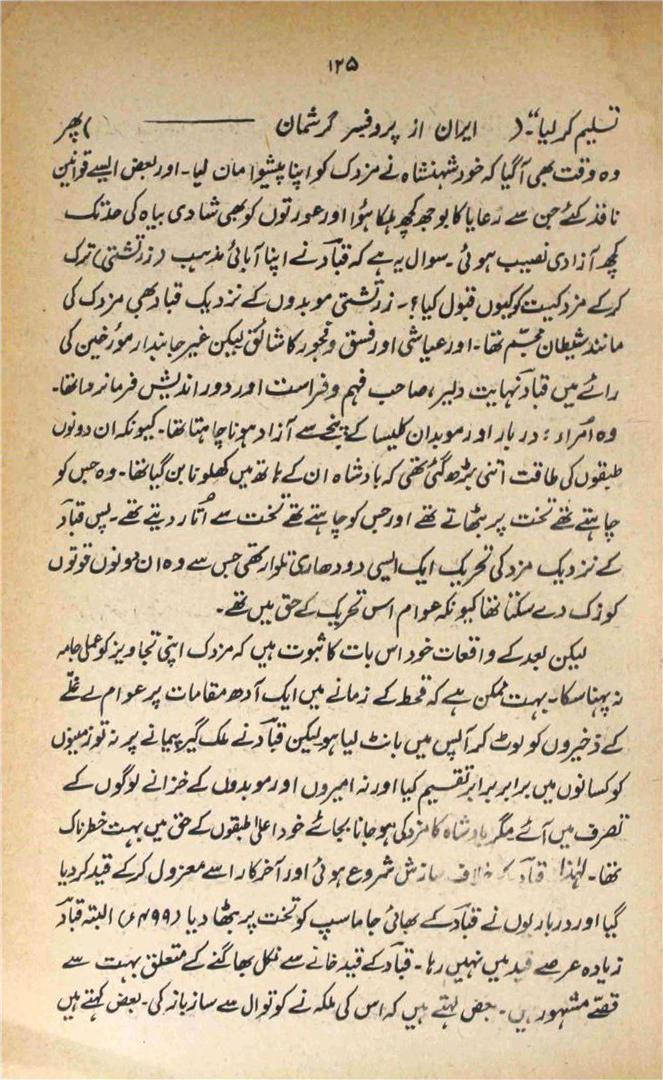 ۱۲۵
تسلیم کر لیا"۔ ( ایران از پروفیسر گرشمان ——— ) پھر
وہ وقت بھی آگیا کہ خود شہنشاہ نے مزدک کو اپنا پیشوا مان لیا۔ اور بعض ایسے قوانین
نافذ کئے جن سے رعایا کا بوجھ کچھ ہلکا ہؤا اور عورتوں کو بھی شادی بیاہ کی حد تک
کچھ آزادی نصیب ہوئی۔ سوال یہ ہے کہ قبادؔ نے اپنا آبائی مذہب (زرتشتی) ترک
کرکے مزدکیت کو کیوں قبول کیا؟۔ زرتشتی موبدوں کے نزدیک قباد بھی مزدک کی
مانند شیطان مجسّم تھا۔ اور عیاشی اور فسق و فجور کا شائق لیکن غیر جانبدار مورٔخین کی
رائے میں قبادؔ نہایت دلیر، صاحب فہم و فراست اور دور اندیش فرمانروا تھا۔
وہ امرٔاء دربار اور موبدان کلیسا کے پنجے سے آزاد ہونا چاہتا تھا۔ کیونکہ ان دونوں
طبقوں کی طاقت اتنی بڑھ گئی تھی کہ بادشاہ ان کے ہاتھ میں کھلونا بن گیا تھا۔ وہ جس کو
چاہتے تھے تخت پر بٹھاتے تھے اور جس کو چاہتے تھے تخت سے اُتار دیتے تھے۔ پس قبادؔ
کے نزدیک مزدکی تحریک ایک ایسی دو دھاری تلوار تھی جس سے وہ ان دونوں قوتوں
کو زک دے سکتا تھا کیونکہ عوام اس تحریک کے حق میں تھے۔
لیکن بعد کے واقعات خود اس بات کا ثبوت ہیں کہ مزدک اپنی تجاویز کو عملی جامہ
نہ پہنا سکا۔ بہت ممکن ہے کہ قحط کے زمانے میں ایک آدھ مقامات پر عوام نے غلّے
کے ذخیروں کو لوٹ کر آپس میں بانٹ لیا ہو لیکن قبادؔ نے ملک گیر پیمانے پر نہ تو زمینوں
کو کسانوں میں برابر برابر تقسیم کیا اور نہ امیروں اور موبدوں کے خزانے لوگوں کے
تصرف میں آئے مگر بادشاہ کا مزدکی ہو جانا بجائے خود اعلیٰ طبقوں کے حق میں بہت خطرناک
تھا۔ لہٰذا قبادؔ کے خلاف سازش شروع ہوئی اور آخر کار اسے معزول کرکے قید کر دیا
گیا اور درباریوں نے قبادؔ کے بھائی جاماسپ کو تخت پر بٹھا دیا (۴۹۹ء) البتہ قبادؔ
زیادہ عرصے قید میں نہیں رہا۔ قبادؔ کے قید خانے سے نکل بھاگنے کے متعلق بہت سے
قصّے مشہور ہیں۔ بعض کہتے ہیں کہ اس کی ملکہ نے کوتوال سے ساز باز کی۔ بعض کہتے ہیں